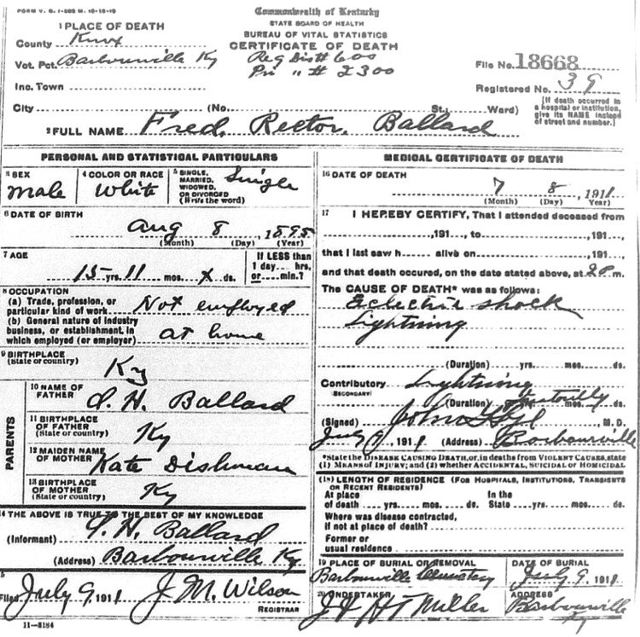 FORM V. S. 1-
Commonwealth of Kentucky
STATE BOARD OF HEALTH
BUREAU OF VITAL STATISTICS
CERTIFICATE OF DEATH
1 PLACE OF DEATH
County Knox
Vot. Pct. Barbourville Ky
Reg Dist # 600
Pri " # 2300
File No. 18668
Inc. Town
Registered No. 39
City (No. St.; Ward)
[If death occurred in a hospital or institution, give its NAME instead of street and number.]
2 FULL NAME Fred. Rector. Ballard
PERSONAL AND STATISTICAL PARTICULARS
3 SEX male
4 COLOR OR RACE White
5 SINGLE, MARRIED, WIDOWED, OR DIVORCED (Write the word) Single
6 DATE OF BIRTH
Aug 8 1895
(Month) (Day) (Year)
7 AGE
If LESS than 1 day hrs. or min.?
15 yrs. 11 mos. x ds.
8 OCCUPATION
(a) Trade, profession, or particular kind of work Not employed
(b) General nature of industry business, or establishment, in which employed (or employer) at home
9 BIRTHPLACE
(State or country) Ky
PARENTS
10 NAME OF FATHER Ballard
11 BIRTHPLACE OF FATHER
(State or country) Ky
12 MAIDEN NAME OF MOTHER Kate Dishman
13 BIRTHPLACE OF MOTHER
(State or country) Ky
14 THE ABOVE IS TRUE TO THE BEST OF MY KNOWLEDGE
(Informant) Ballard
(Address) Barbourville Ky
15
Filed July 9 1911 J. M. Wilson
REGISTRAR
11-3184
MEDICAL CERTIFICATE OF DEATH
16 DATE OF DEATH
7 8 1911
(Month) (Day) (Year)
17 I HEREBY CERTIFY, That I attended deceased from
, 191 , to , 191 ,
that I last saw h alive on , 191 ,
and that death occured, on the date stated above, at 2 P. m.
The CAUSE OF DEATH* was as follows:
Eclectric shock
Lightning
(Duration) yrs. mos. ds.
Contributory Lightning
SECONDARY
(Duration) yrs. mos. ds.
(Signed) John M. D.
July 9, 1911 (Address) Barbourville
*State the DISEASE CAUSING DEATH, or, in deaths from VIOLENT CAUSES, state
(1) MEANS OF INJURY; and (2) whether ACCIDENTAL, SUICIDAL OR HOMICIDAL
18 LENGTH OF RESIDENCE (FOR HOSPITALS, INSTITUTIONS, TRANSIENTS OR RECENT RESIDENTS)
At place of death yrs. mos. ds. In the State yrs. mos. ds.
Where was disease contracted,
If not at place of death?
Former or
usual residence
19 PLACE OF BURIAL OR REMOVAL
Barbourville Cemetery
DATE OF BURIAL
July 9, 1911
20 UNDERTAKER
Miller
ADDRESS
Barbourville
Ky